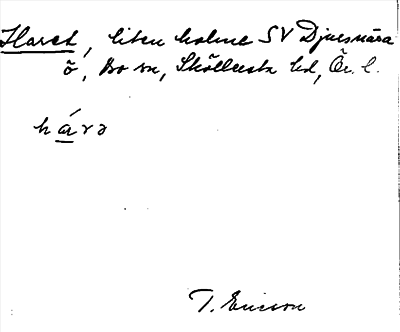 Haret, liten holme SV Djursnära
ö, Bo sn, Sköllersta hd, Ör. l.
hárə
T. Ericson